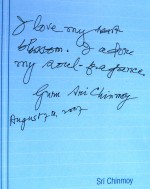 I love my heart
blossom. I adore
my soul-fragrance.
Guru Sri Chinmoy
August 2007
Sri Chinmoy